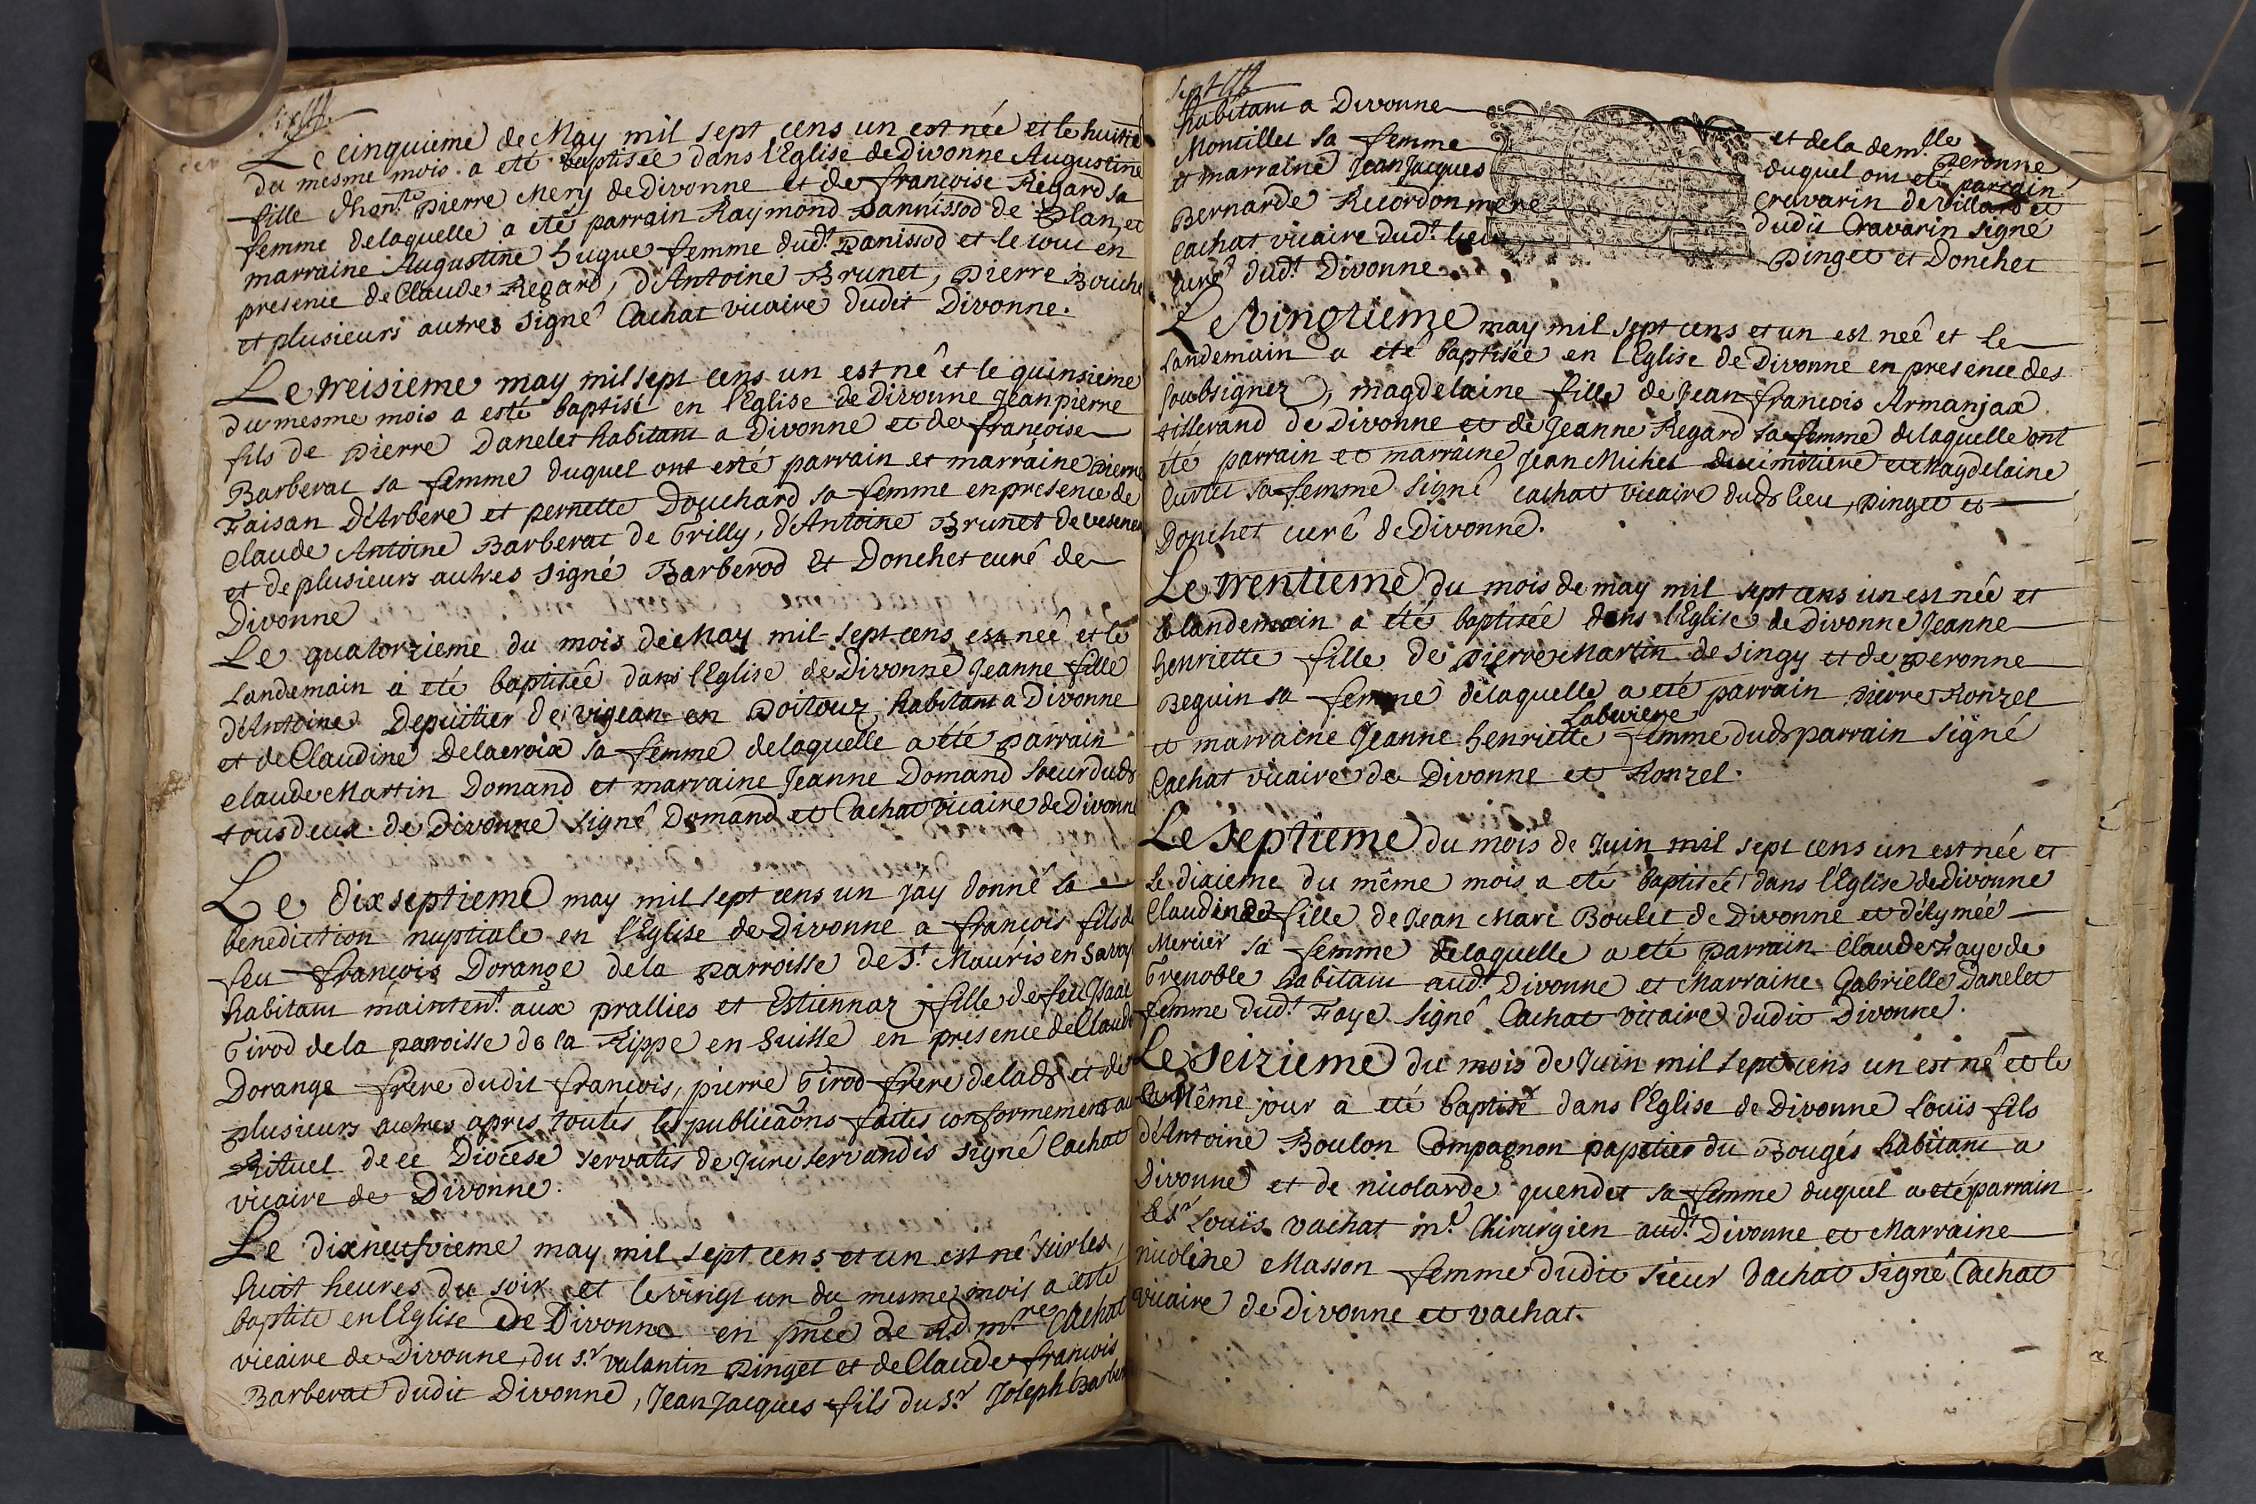 Le cinquieme de May mil sept cens un est née et le huitie
du mesme mois a eté baptisée dans l'Eglise de Divonne Augustine
fille d'hon.te Pierre Mery de Divonne et de françoise Regard sa
femme de laquelle a eté parrain Raymond Pannissod de Plan, et
marraine Augustine hugue femme dud.t Panissod et le tout en
presence de Claude Regard, d'Antoine Brunet, Pierre Bouche
et plusieurs autres signé Cachat vicaire dudit Divonne.
Le treisieme may mil sept cens un est nê et le quinsieme
du mesme mois a esté baptisé en l'Eglise de Divonne Jean pierre
fils de Pierre Danelet habitant a Divonne et de françoise
Barberat sa femme duquel ont esté parrain et marraine Pierre
Faisan D'Arbere et pernette Douchard sa femme en presence de
Claude Antoine Barberat de Grilly, d'Antoine Brunet de vesene
et de plusieurs autres signé Barberod et Donchet curé de
Divonne
Le quatorzieme du mois de May mil sept cens est neê et le
Landemain a eté baptisée dans l'Eglise de Divonne Jeanne fille
d'Antoine Depuitier de vigean en Poitouz habitant a Divonne
et de Claudine Delacroix sa femme de laquelle a été parrain
claude Martin Domand et marraine Jeanne Domand soeur dud.
tous deux de Divonne signê Domand et Cachat vicaire de Divonne
Le dixseptieme may mil sept cens un j'ay donné la
benediction nuptiale en l'Eglise de Divonne a françois fils de
feu françois Dorange de la parroisse de S.t Mauris en Savoy
habitant mainten.t aux prallies et Estiennaz fille de feu Isaac
Girod de la paroisse de la Rippe en Suisse en presence de Claude
Dorange frere dudit françois, pierre Girod frere de lad. et de
plusieurs autres apres toutés les publicaõns faites conformement au
Rituel de ce Diocese servatis de Jure servandis signé Cachat
vicaire de Divonne.
Le dixneufvieme may mil sept cens et un est né sur les
huit heures du soir et le vingt un du mesme mois a esté
baptise en l'Eglise De Divonne en pñce de R.d m.re Cachat
vicaire de Divonne, du s.r valantin Pinget et de Claude françois
Barberat dudit Divonne, Jean Jacques fils du S.r Joseph Barber
habitant a Divonne et de la dem.lle
Montillet sa femme duquel ont eté Peronne parrain
et marraine Jean Jacques Cravarin de Villard et
Bernarde Recordon mere dudit Cravarin signé
Cachat vicaire dud.t lieu, Pinget et Donchet
curé dud.t Divonne
Le vingtieme may mil sept cens et un est neê et le
Landemain a eté baptisée en l'Eglise de Divonne en presence des
soubsignez, magdelaine fille de Jean françois Armanjax
tisserand de Divonne et de Jeanne Regard sa femme de laquelle ont
été parrain et marraine Jean Michel Ducimitiere et Magdelaine
Curtet sa femme signé Cachat vicaire dud. lieu, Pinget et
Donchet curé de Divonne.
Le trentieme du mois de may mil sept cens un est née et
le landemain a eté baptisée dans l'Eglise de Divonne Jeanne
henriette fille de Pierre Martin de Singy et de Peronne
Beguin sa femme de laquelle a eté parrain Pierre Ronzel
et marraine Jeanne henriette Laberiere femme dud. parrain signé
Cachat vicaire de Divonne et Ronzel.
Le septieme du mois de Juin mil sept cens un est née et
le dixieme du même mois a eté baptisée dans l'Eglise de Divonne
Claudine fille de Jean Marc Boulet de Divonne et d'Eymée
Mercier sa femme de laquelle a eté parrain Claude Faye de
Grenoble habitant aud.t Divonne et Marraine Gabrielle Danelet
femme dud.t Faye signê Cachat vicaire dudit Divonne.
Le seizieme du mois de Juin mil sept cens un est né et le
même jour a eté baptisé dans l'Eglise de Divonne Louis fils
d'Antoine Boulon Compagnon papetier du Bougés habitant a
Divonne et de nicolarde quendet sa femme duquel a eté parrain
le s.r Louis vachat m.e Chirurgien aud.t Divonne et Marraine
nicoline Masson femme dudit sieur Vachat signé Cachat
vicaire de Divonne et vachat.